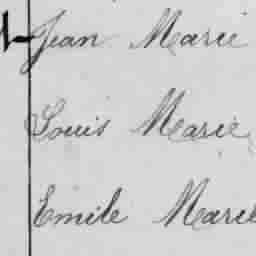 Jean Marie
Louis Marie
Emile Marie